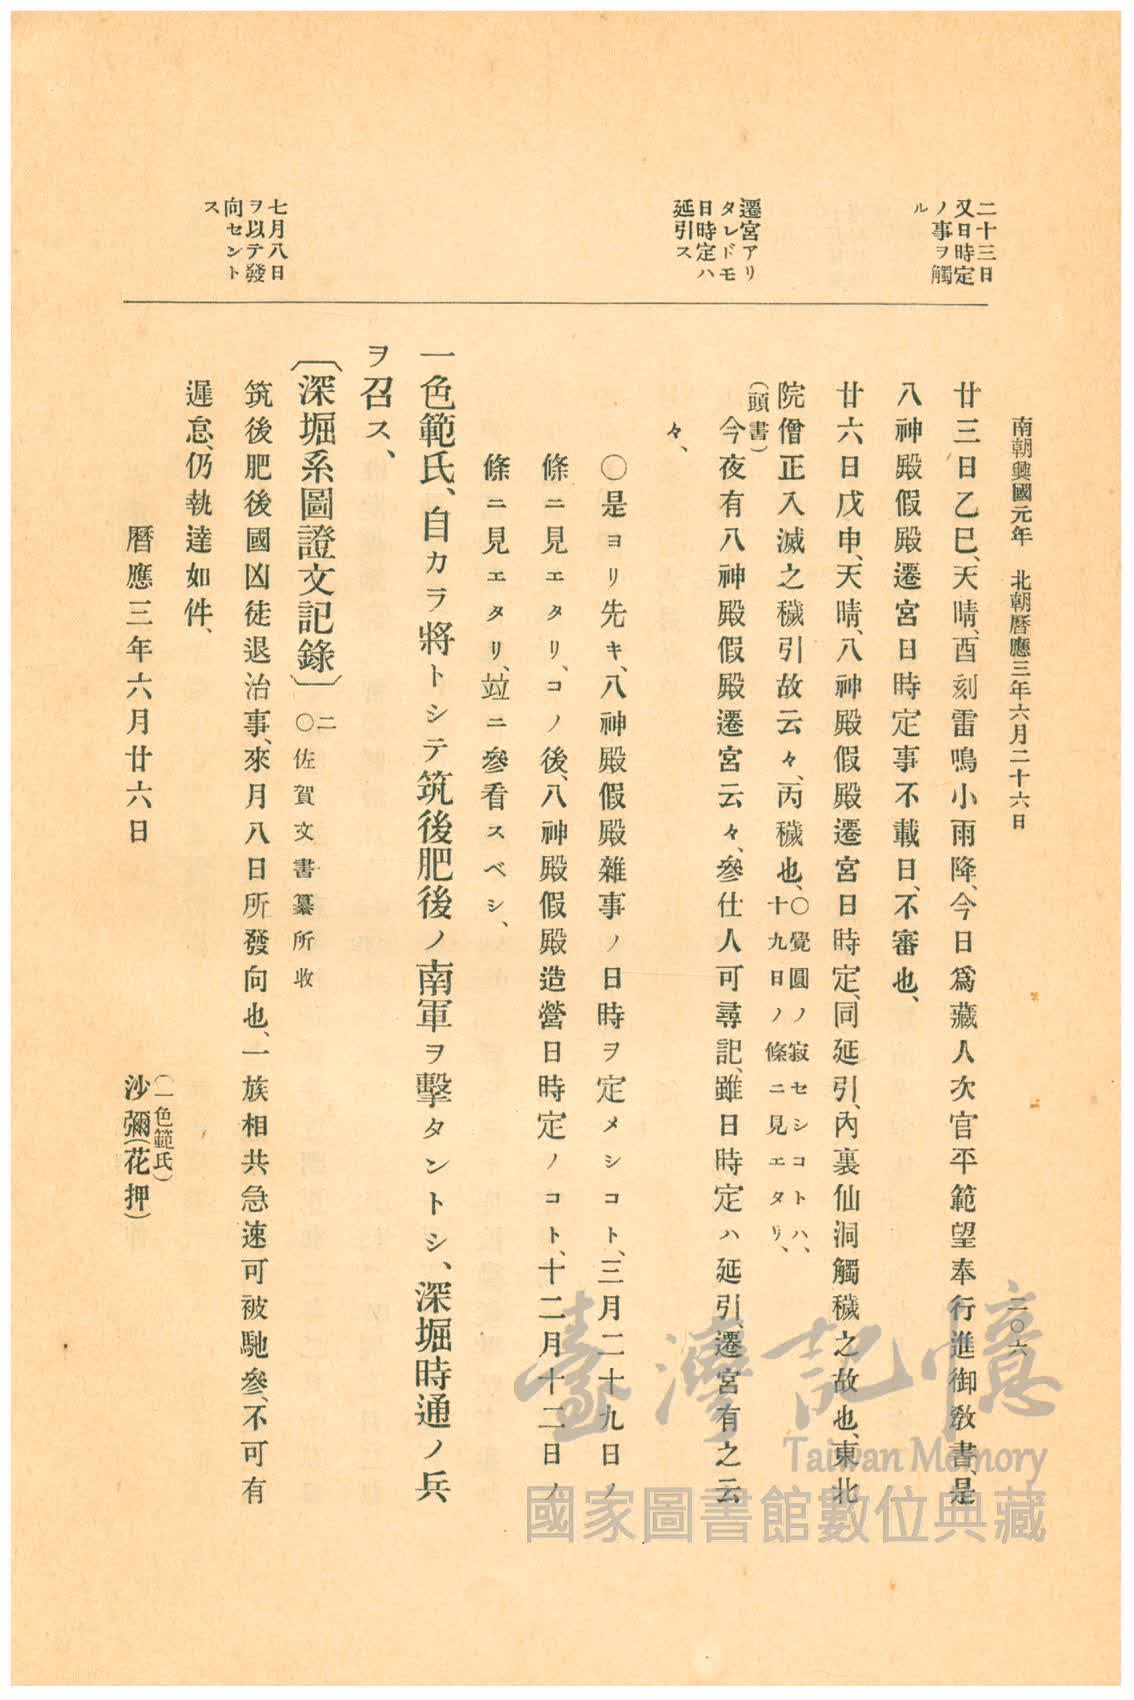 南朝興國元年　北朝曆應三年六月二十六日
二〇六
二十三日
又日時定
ノ事ヲ觸
ル
遷宮アリ
タレドモ
日時定ハ
延引ス
七月八日
ヲ以テ發
向セント
ス
廿三日乙巳、天晴、酉刻雷鳴小雨降、今日爲藏人次官平範望奉行進御敎書、是
八神殿假殿遷宮日時定事不載日、不審也、
廿六日戊申、天晴、八神殿假殿遷宮日時定、同延引、內裏仙洞觸穢之故也、東北
院僧正入滅之穢引故云々、丙穢也、〇覺圓ノ寂セシコトハ、
十九日ノ條ニ見エタリ、
(頭書)
今夜有八神殿假殿遷宮云々、參仕人可尋記、雖日時定ハ延引、遷宮有之云
々、
〇是ヨリ先キ、八神殿假殿雜事ノ日時ヲ定メシコト、三月二十九日ノ
條ニ見エタリ、コノ後、八神殿假殿造營日時定ノコト、十二月十二日ノ
條ニ見エタリ、竝ニ參看スベシ、
一色範氏、自カラ將トシテ筑後肥後ノ南軍ヲ擊タントシ、深堀時通ノ兵
ヲ召ス、
〔深堀系圖證文記錄〕二
〇佐賀文書纂所收
筑後肥後國凶徒退治事、來月八日所發向也、一族相共急速可被馳參、不可有
遲怠、仍執達如件、
曆應三年六月廿六日
(一色範氏)
沙彌(花押)
臺灣記憶
Taiwan Memory
國家圖書館數位典藏